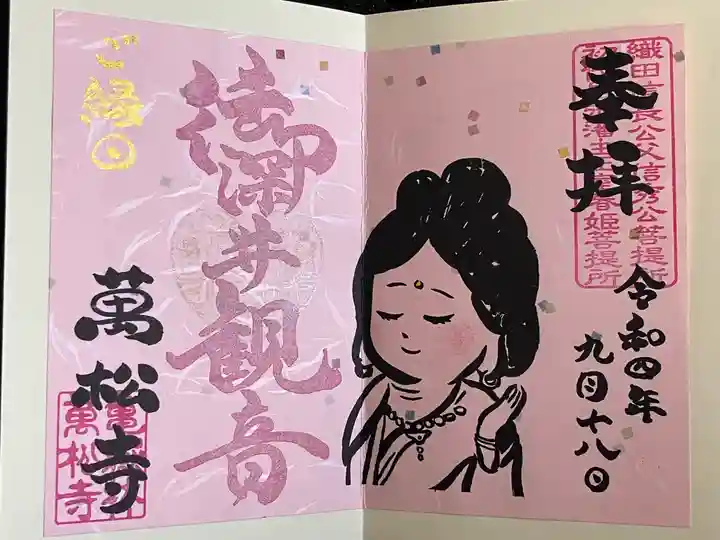 奉拝
織田信長公父信秀公菩提所
令和四年
九月十八日
御深井観音
ご縁日
萬松寺
萬松寺